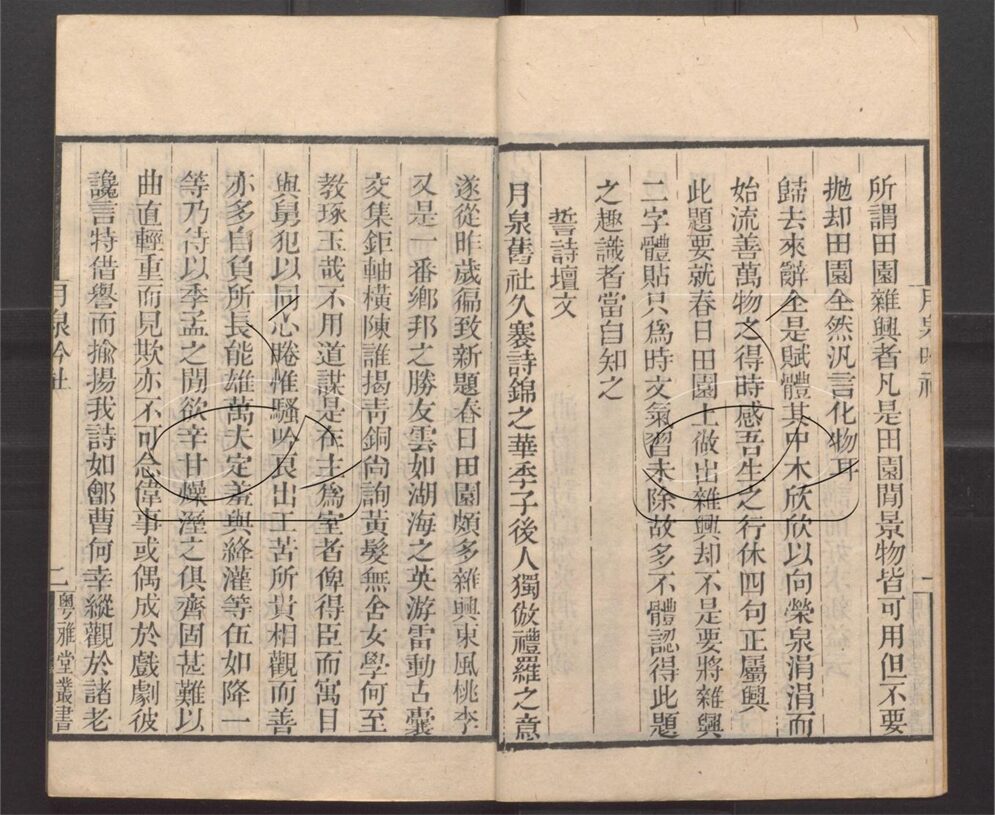 所謂田園雜興者凡是田園閒景物皆可用但不要
拋却田園全然汎言化物耳
歸去來辭全是賦體其中木欣欣以向榮泉涓涓而
始流善萬物之得時感吾生之行休四句正屬興
此題要就春日田園上做出雜興却不是要將雜興
二字體貼只爲時文氣習未除故多不體認得此題
之趣識者當自知之
誓詩壇文
月泉舊社久褰詩錦之華季子後人獨倣禮羅之意
遂從昨歲徧致新題春日田園頗多雜興東風桃李
又是一番鄉邦之勝友雲如湖海之英游雷動古囊
交集鉅軸橫陳誰揭青銅尙詢黃髮無舍女學何至
教琢玉哉不用道謀是在主爲室者俾得臣而寓目
與舅犯以同心睠惟騷吟良出工苦所貴相觀而善
亦多自負所長能雄萬夫定羞與絳灌等伍如降一
等乃待以季孟之閒欲辛甘燥溼之俱齊固甚難以
曲直輕重而見欺亦不可念偉事或偶成於戲劇彼
讒言特借譽而揄揚我詩如鄶曹何幸縱觀於諸老
月泉吟社
二
粤雅堂叢書